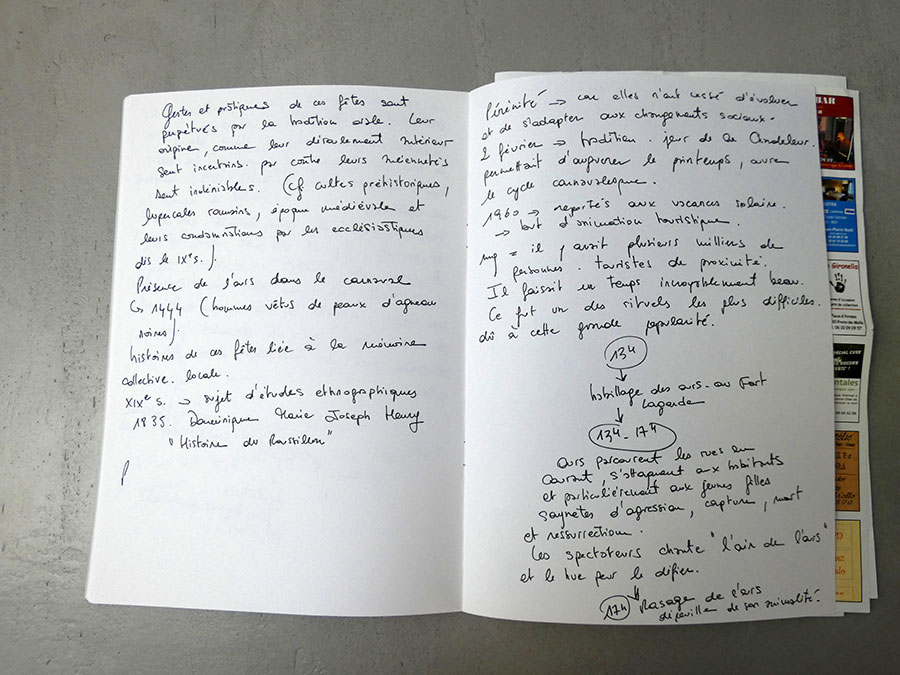 Gestes et pratiques de ces fêtes sont
perpétués par la tradition orale. Leur
origine, comme leur déroulement intérieur
sont incertains. par contre leurs
sont indéniables. (cf cultes préhistoriques,
lupercales romains, époque médiévale et
leurs condamnations par les ecclésiastiques
dès le IXe s.).
Présence de l'ours dans le carnaval
↳ 1444 (hommes vêtus de peaux d'agneau
noires).
histoires de ces fêtes liée à la mémoire
collective. locale.
XIXe s. → sujet d'études ethnographiques
1835. Dominique Marie Joseph Henry
"Histoire du Roussillon"
P
Pérénité → car elles n'ont cessé d'évoluer
et de s'adapter aux changements sociaux.
2 février → tradition. jour de la Chandeleur.
permettait d'augurer le printemps, ouvre
le cycle carnavalesque.
1960 → reportés aux vacances scolaire.
→ but d'animation touristique.
= il y avait plusieurs milliers de
personnes. touristes de proximité.
Il faisait un temps incroyablement beau.
Ce fut un des rituels les plus difficiles.
dû à cette grande popularité.
13h
↓
habillage des ours - au Fort
Lagarde
↓
13h - 17h
Ours parcourent les rues en
courant, s'attaquent aux habitants
et particulièrement aux jeunes filles
saynètes d'agression, capture, mort
et ressurection.
Les spectateurs chante "l'air de l'ours"
et le hue pour le défier.
↓
17h Rasage de l'ours
dépouille de son animalité.
BAR
Gironella
SPECIAL CUBE
entales